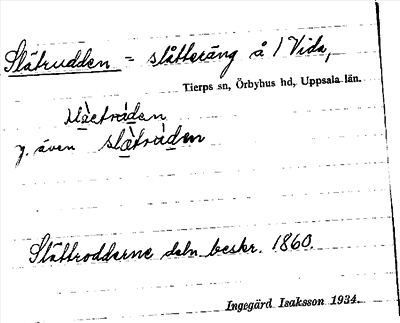 Slätrudden = slåtteräng å / Vida,
Tierps sn, Örbyhus hd, Uppsala län.
y. även
Slättrodderne deln. beskr. 1860.
Ingegärd Isaksson 1934.